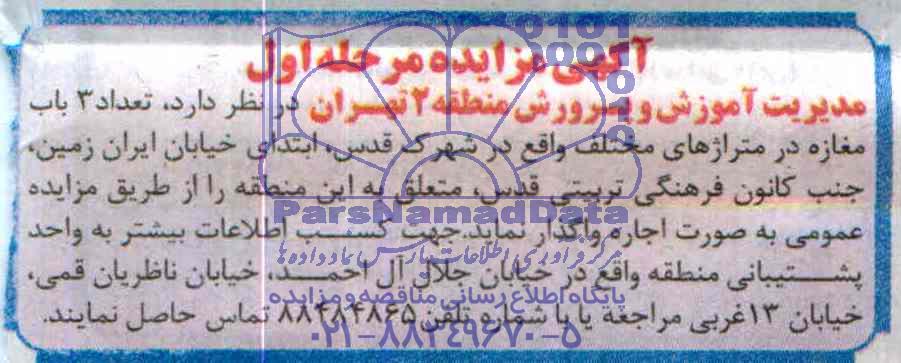 آگهی مزایده مرحله اول
مدیریت آموزش و پرورش منطقه ۲ تهران در نظر دارد، تعداد ۳ باب
مغازه در متراژهای مختلف واقع در شهرک قدس، ابتدای خیابان ایران زمین،
جنب کانون فرهنگی تربیتی قدس، متعلق به این منطقه را از طریق مزایده
ParsNamadData
عمومی به صورت اجاره واگذار نماید. جهت کسب اطلاعات بیشتر به واحد
مرکز فرآوری اطلاعات پارس نماد داده ها
پشتیبانی منطقه واقع در خیابان جلال آل احمد، خیابان ناظریان قمی،
پایگاه اطلاع رسانی مناقصه و مزایده
خیابان ۱۳ غربی مراجعه یا با شماره تلفن ۸۸۴۸۴۸۶۵ تماس حاصل نمایند.
۰۲۱-۸۸۳۴۹۶۷۰-۵